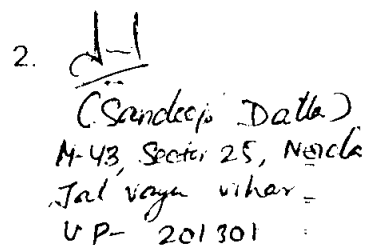 2.
(Sandeep Datta)
M-43, Sector 25, Noida
Jal vayu vihar
UP- 201301